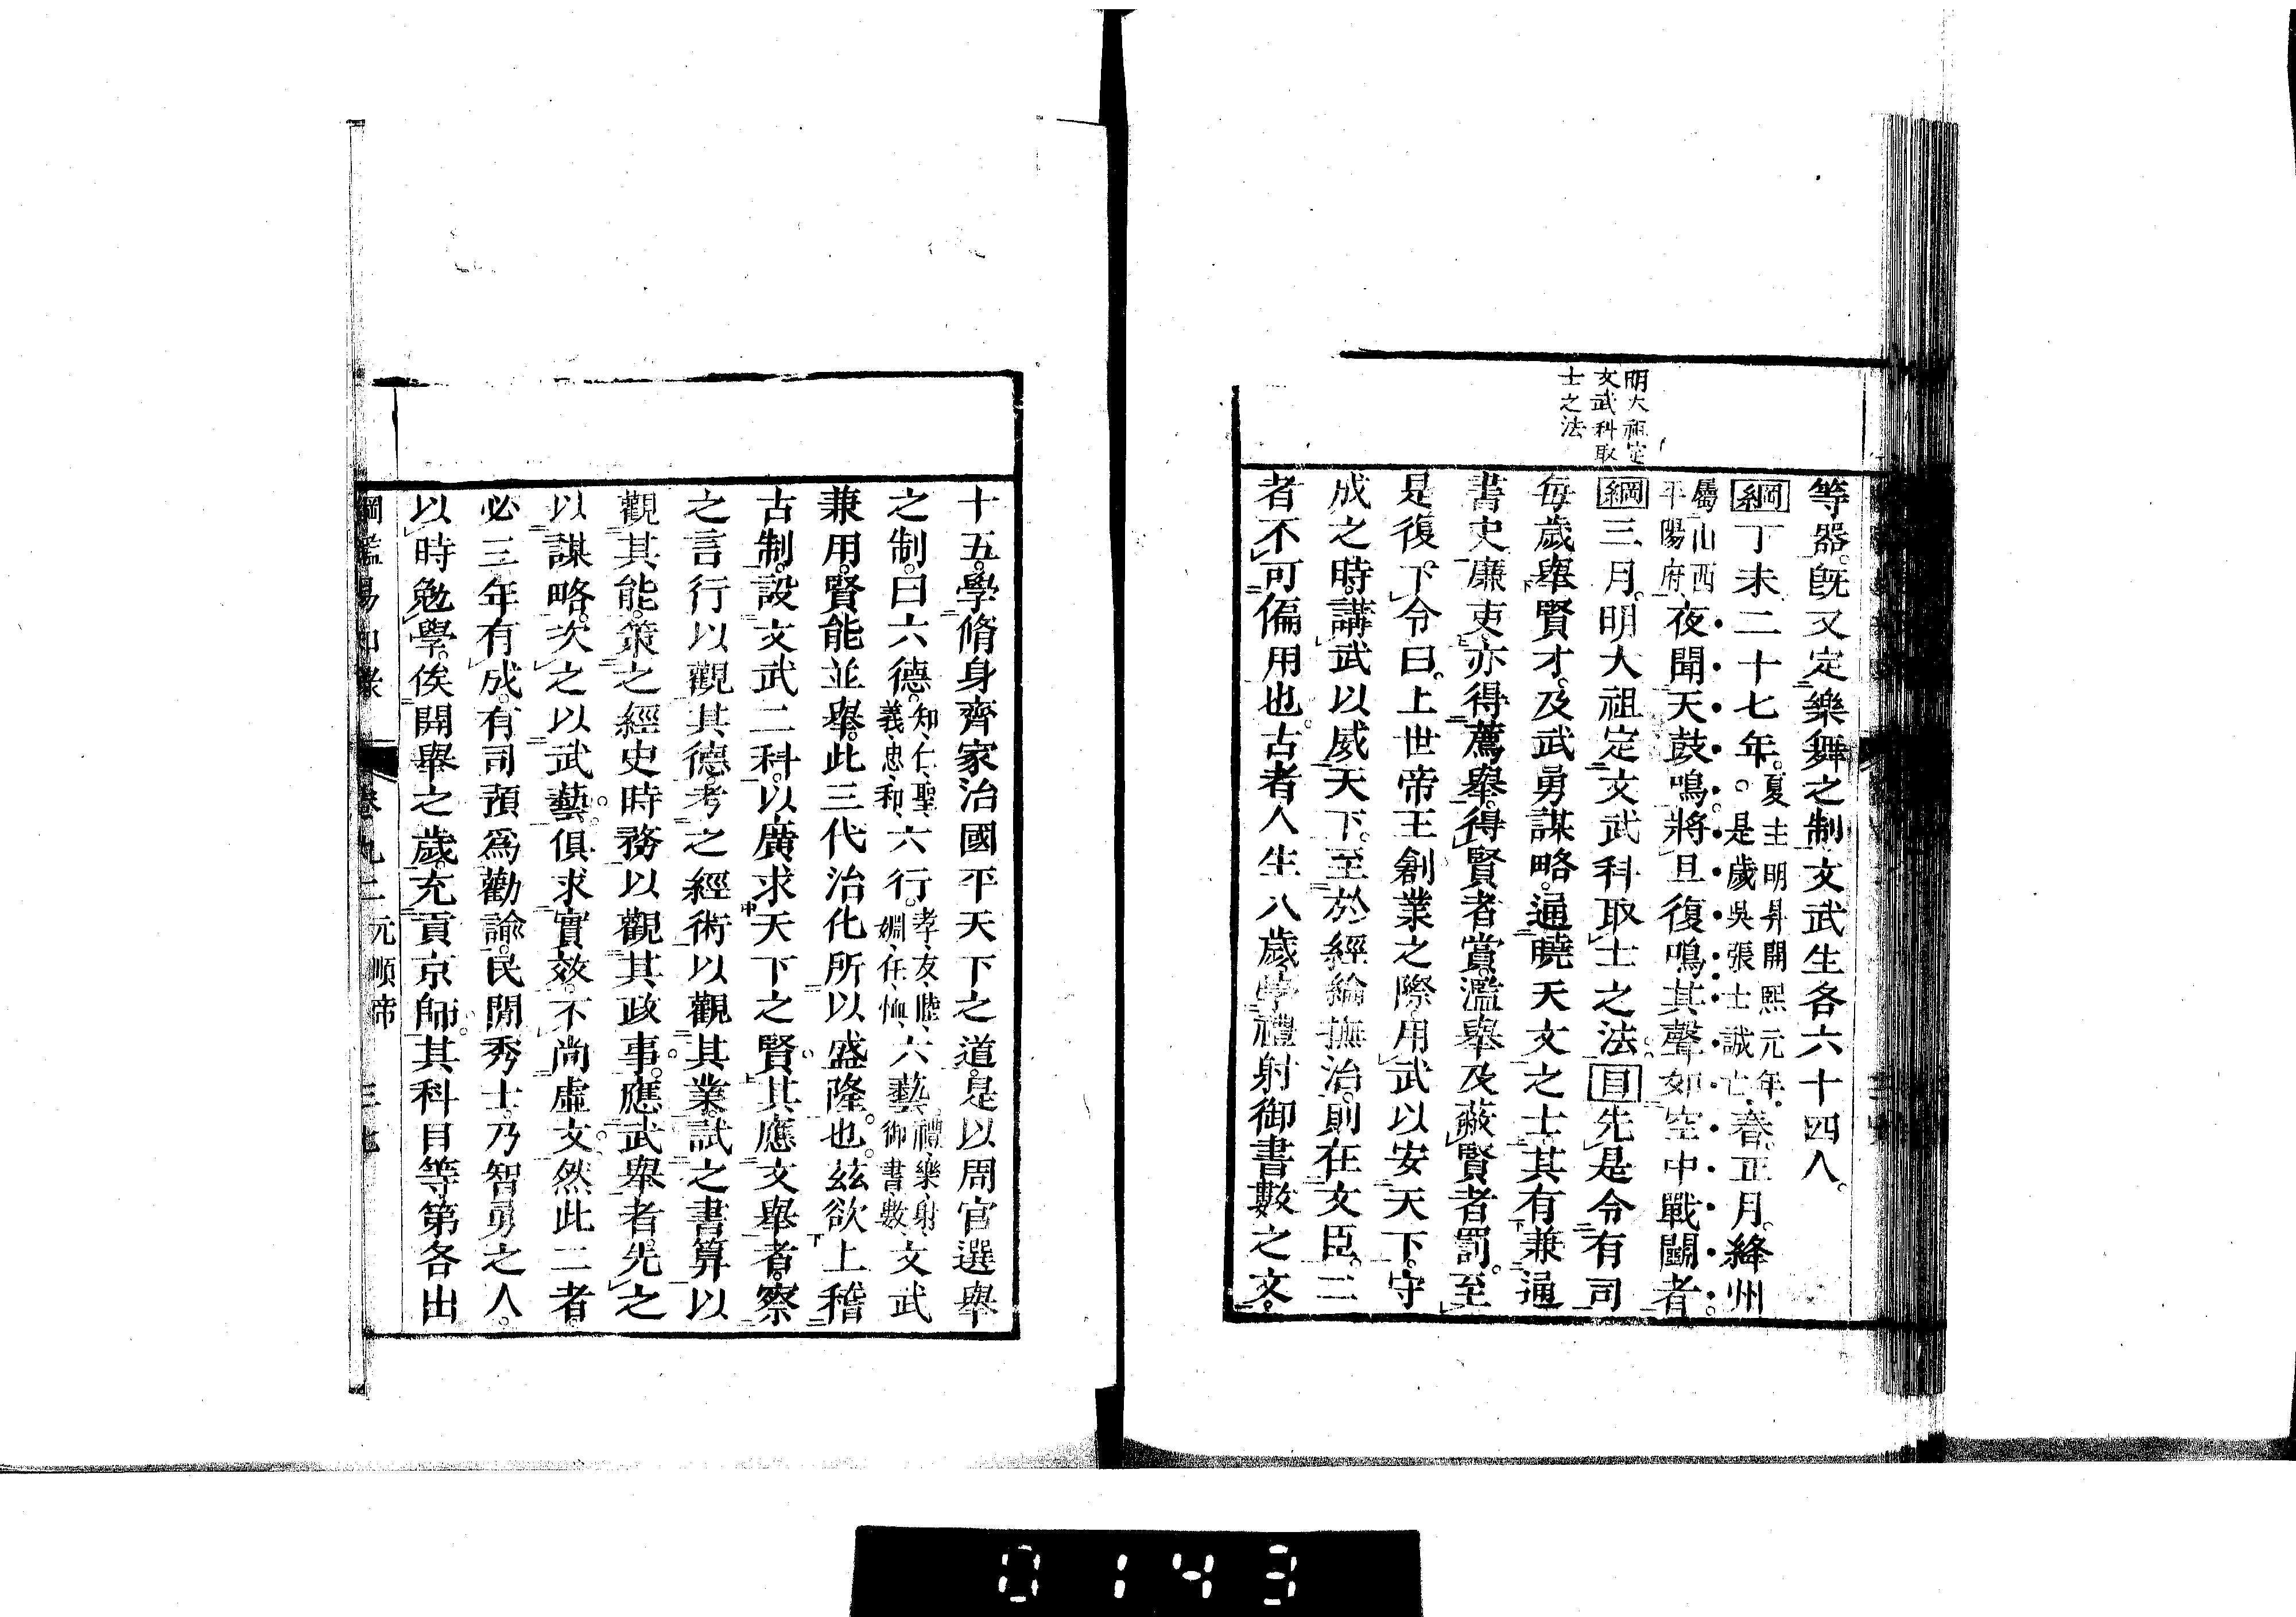 明大祖定
文武科取
士之法
等器。既又定樂舞之制文武生各六十四人。
綱丁未二十七年。夏主明昇開熙元年。○是歲吳張士誠亡。春。正月。絳州
屬山西平陽府、夜聞天鼓鳴將旦復鳴其聲如空中戰鬭者。
綱三月。明大祖定文武科取士之法。目先是令有司
每歲舉賢才。及武勇謀略。通曉天文之士。其有兼通
書史廉吏亦得薦舉。得賢者賞。濫舉及蔽賢者罰。至
是復。下令曰。上世帝王創業之際。用武以安天下。守
成之時。講武以威天下。至於經綸撫治。則在文臣。二
者不可偏用也。古者人生八歲。學禮射御書數之文。
十五。學脩身齊家治國平天下之道。是以周官選舉
之制。曰六德。知、仁、聖、義、忠、和、六行。孝、友、睦、婣、任、恤、六藝。禮、樂、射、御、書、數、文武
兼用。賢能並舉。此三代治化所以盛隆也。茲欲上稽
古制。設文武二科。以廣求天下之賢。其應文舉者。察
之言行以觀其德。考之經術以觀其業。試之書算以
觀其能。策之經史時務以觀其政事。應武舉者。先之
以謀略。次之以武藝。俱求實效。不尚虛文。然此二者。
必三年有成。有司預爲勸諭。民閒秀士。乃智勇之人。
以時勉學。俟開舉之歲。充貢京師。其科目等第各出
綱鑑易知錄 卷九二元順帝 三七
0143